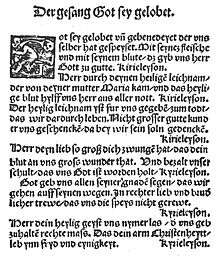 Der gesang Got sey gelobet.
Got sey gelobet vñ gebenedeyet der vns
selber hat gespeyset. Mit seynez fleische
vnd mit seynem blute/ dz gyb vns herr
Got zu gutte. Kirieleyson.
Herr durch deynen heylige leichnam/
der von deyner mutter Maria kam/ vnd das heyli-
ge blut hylff vns herr aus aller nott. Kirieleyson.
Der heylig leichnam yst fur vns gegebē zum tode/
das wir dardurch leben. Nicht grosser gutte kund
er vns geschenckē/ da bey wir sein soln gedenckē.
Kirieleyson.
Herr deyn lieb so groß dich zwunge hat/ das deyn
blut an vns groß wunder that. Vnd bezalt vnser
schult/ das vns Got ist worden holt. Kyrieleyson.
Got geb vns allen seyner gnade segen/ das wir
gehen auff seynen wegen. In rechter lieb vnd bruder-
licher trewe/ das vns die speys nicht gerewe.
Kyrieleyson.
Herr deyn heylig geyst vns nymer las/ d vns geb
zuhaltē rechte mass. Das dein arm Christenheyt
leb ynn fryd vnd eynigkeyt. Kyrieleyson.